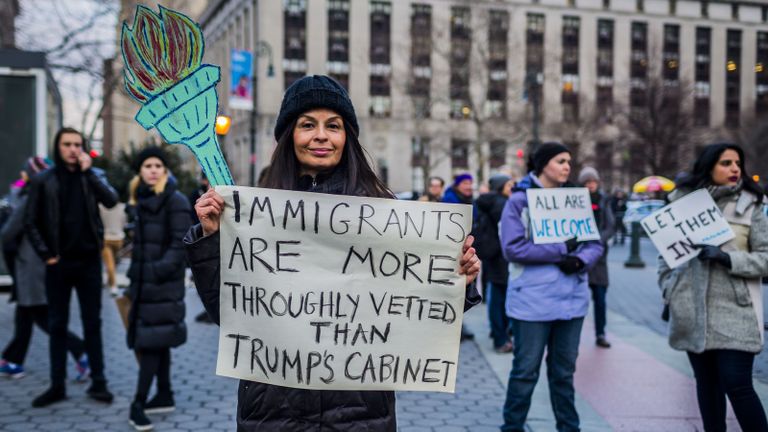 IMMIGRANTS
ARE MORE
THROUGHLY VETTED
THAN
TRUMP'S CABINET
ALL ARE
WELCOME
LET THEM
IN